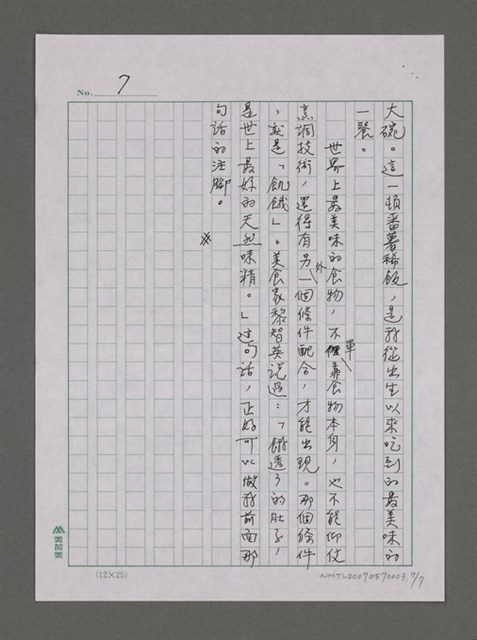 No. 7
大碗。這一頓番薯稀飯，是我從出生以來吃到的最美味的
一餐。
世界上最美味的食物，不單靠食物本身，也不能仰仗
烹調技術，還得有另外一個條件配合，才能出現。那個條件
，就是「飢餓」。美食家黎智英說過：「餓透了的肚子，
是世上最好的天然味精。」这句話，正好可以做我前面那
句話的注腳。
※
(12×25)
NMTL20070570003.7/7